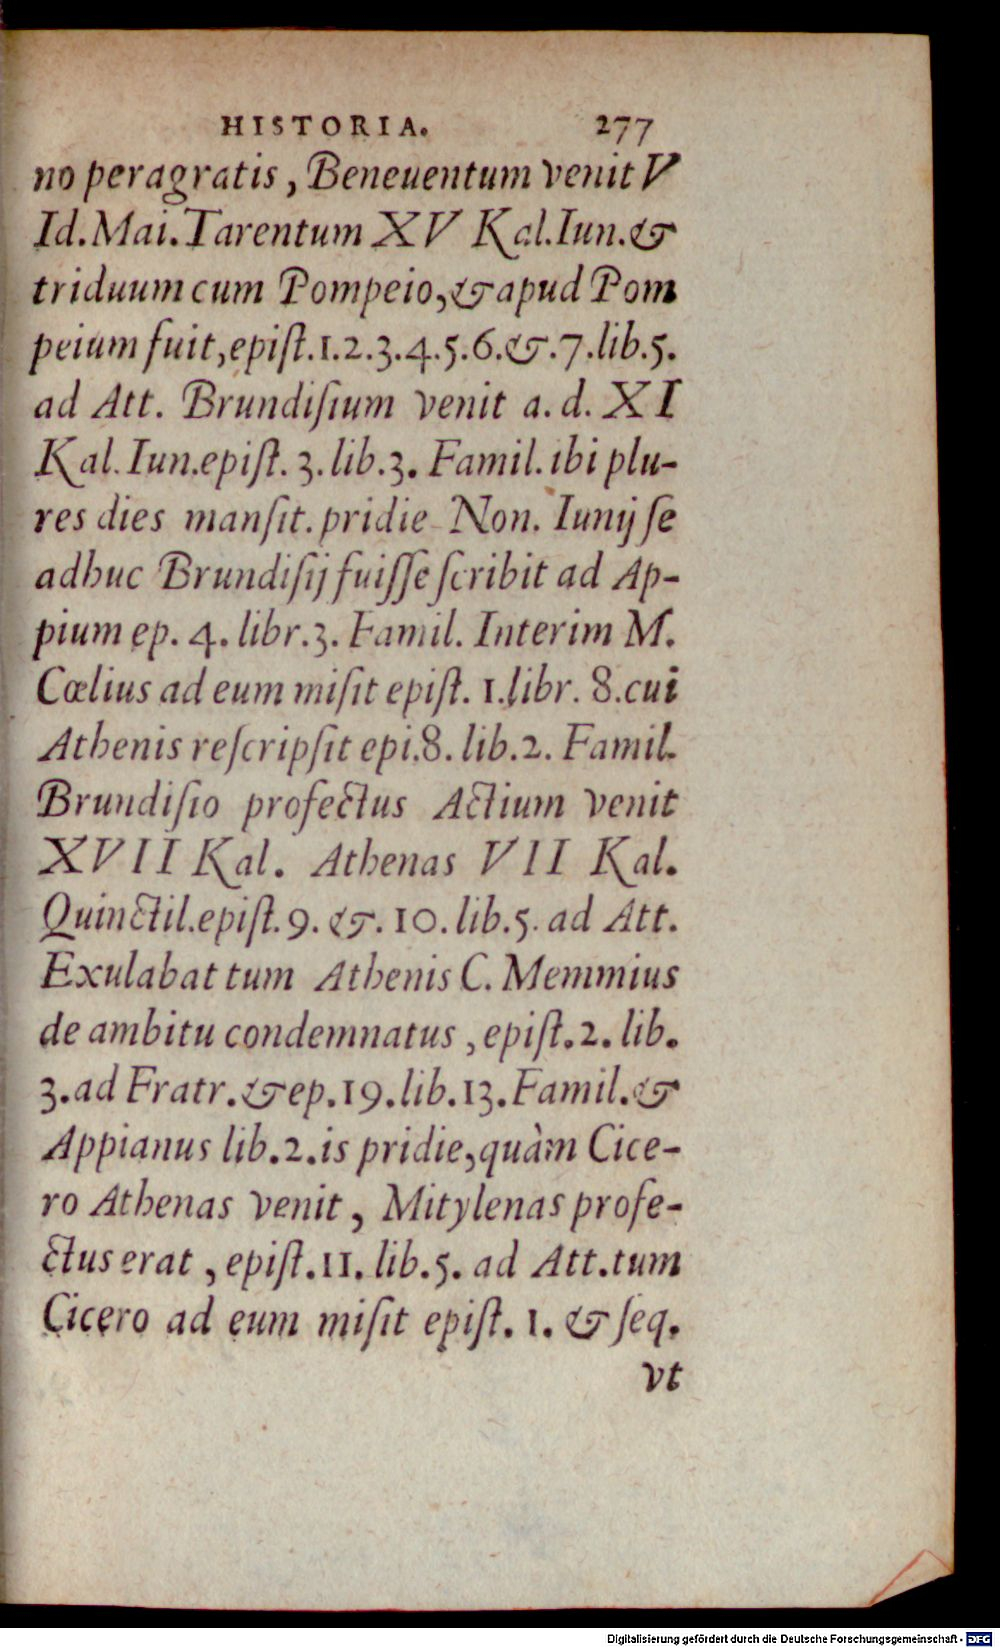 HISTORIA. 277
no peragratis, Beneuentum venit V
Id. Mai. Tarentum XV Kal. Iun. &
triduum cum Pompeio, & apud Pom
peium fuit, epiſt. 1. 2. 3. 4. 5. 6. &. 7. lib. 5.
ad Att. Brundiſium venit a. d. XI
Kal. Iun. epiſt. 3. lib. 3. Famil. ibi plu-
res dies manſit. pridie Non. Iunij ſe
adhuc Brundiſij fuiſſe ſcribit ad Ap-
pium ep. 4. libr. 3. Famil. Interim M.
Cœlius ad eum miſit epiſt. 1. libr. 8. cui
Athenis reſcripſit epi. 8. lib. 2. Famil.
Brundiſio profectus Actium venit
XVII Kal. Athenas VII Kal.
Quinctil. epiſt. 9. &. 10. lib. 5. ad Att.
Exulabat tum Athenis C. Memmius
de ambitu condemnatus, epiſt. 2. lib.
3. ad Fratr. & ep. 19. lib. 13. Famil. &
Appianus lib. 2. is pridie, quàm Cice-
ro Athenas venit, Mitylenas profe-
ctus erat, epiſt. 11. lib. 5. ad Att. tum
Cicero ad eum miſit epiſt. 1. & ſeq.
vt
Digitalisierung gefördert durch die Deutsche Forschungsgemeinschaft - DFG